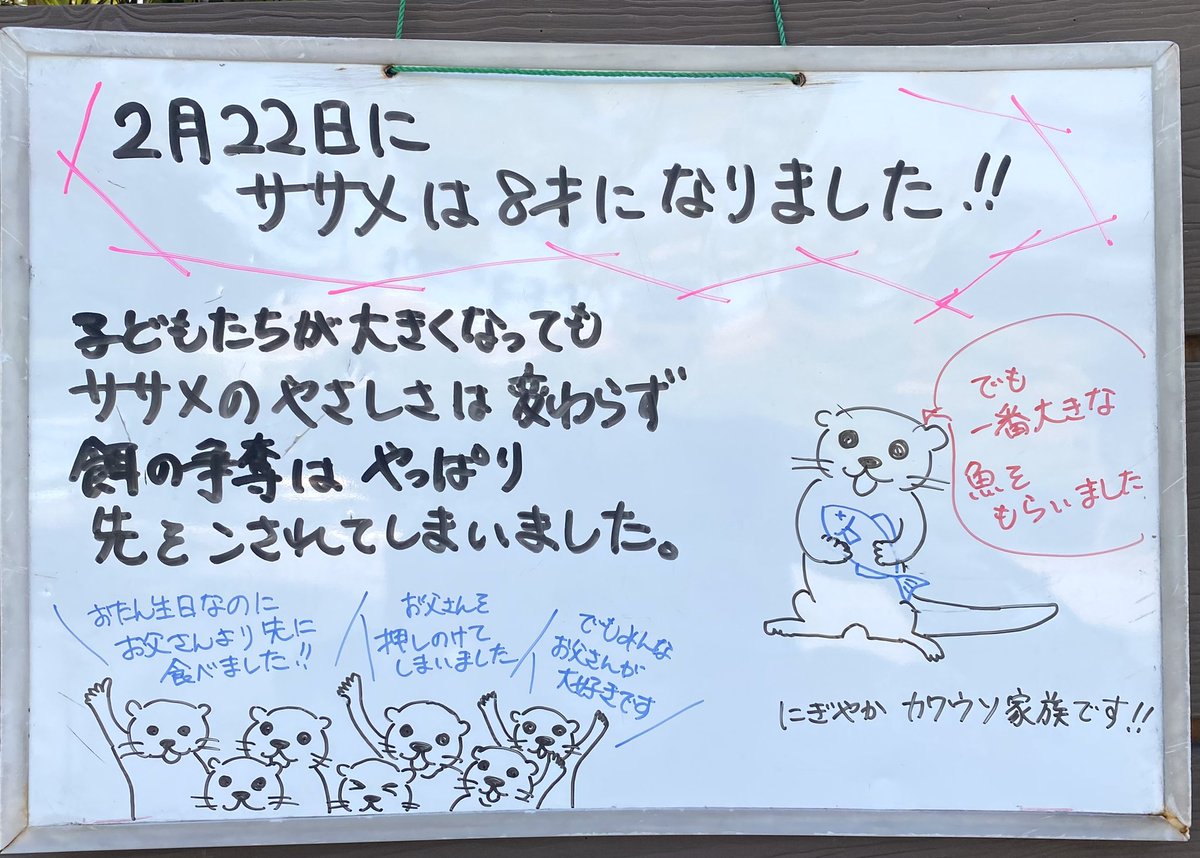 2月22日に
ササメは8才になりました!!
子どもたちが大きくなっても
ササメのやさしさは変わらず
餌の争奪はやっぱり
先をこされてしまいました。
でも
一番大きな
魚を
もらいました
おたん生日なのに
お父さんより先に
食べました!!
お父さんを
押しのけて
しまいました
でもみんな
お父さんが
大好きです
にぎやか カワウソ家族です!!